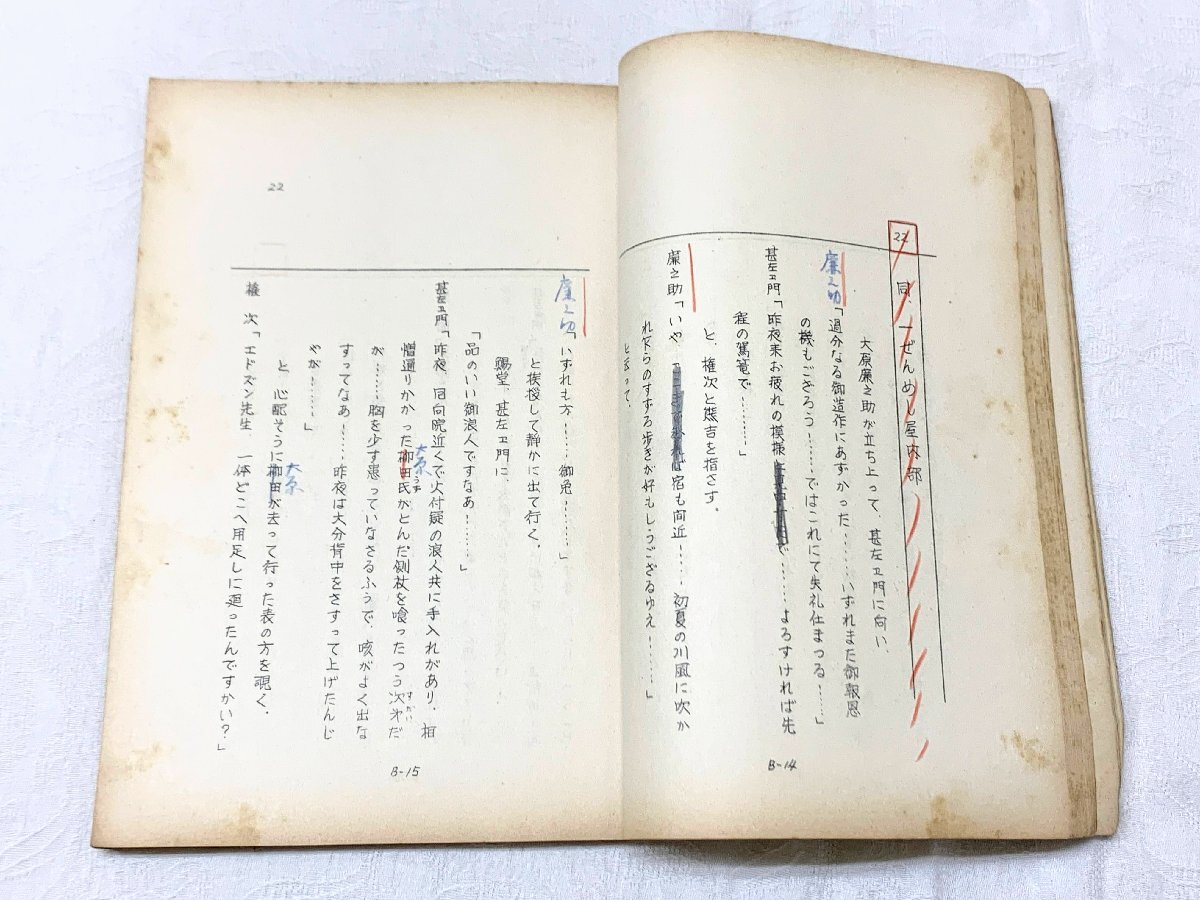 22
同、一ぜんめし屋内部
大原廉之助が立ち上って、甚左ヱ門に向い、
廉之助
「過分なる御造作にあずかった……いずれまた御報恩
の機もござろう……ではこれにて失礼仕まつる……」
甚左ヱ門「昨夜来お疲れの模様 で……よろすければ先
程の駕篭で………」
と、権次と熊吉を指さす。
廉之助「いや 宿も間近……初夏の川風に吹か
れ乍らのすずろ歩きが好もしうござるゆえ……」
と云って、
B-14
22
廉之助
「いずれも方……御免……」
と挨拶して静かに出て行く。
鶴堂、甚左ヱ門に、
「品のいい御浪人ですなあ……」
甚左ヱ門「昨夜、回向院近くで火付疑の浪人共に手入れがあり、相
憎通りかかった柳田氏がとんだ側杖を喰ったつう次第だ
大原
うず
すだい
が……胸を少す患っていなさるふうで、咳がよく出な
すってなあ……昨夜は大分背中をさすって上げたんじ
やが……」
と 心配そうに柳田が去って行った表の方を覗く。
大原
権 次「エドズン先生 一体どこへ用足しに廻ったんですかい?」
B-15